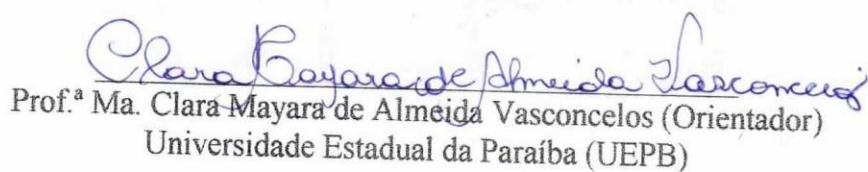 Clara Mayara de Almeida Vasconcelos
Prof.ª Ma. Clara Mayara de Almeida Vasconcelos (Orientador)
Universidade Estadual da Paraíba (UEPB)